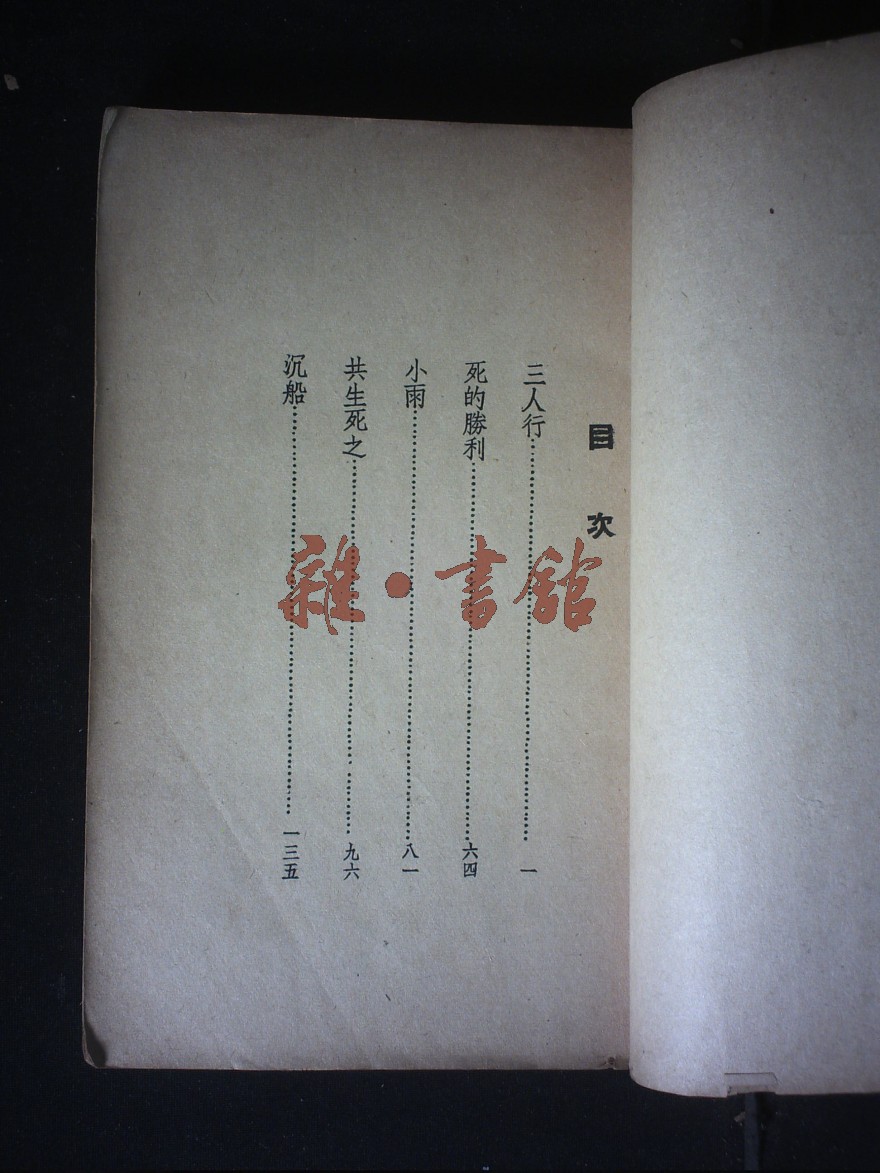 目次
三人行 一
死的勝利 六四
小雨 八一
共生死之 九六
沉船 一三五
雜·書館